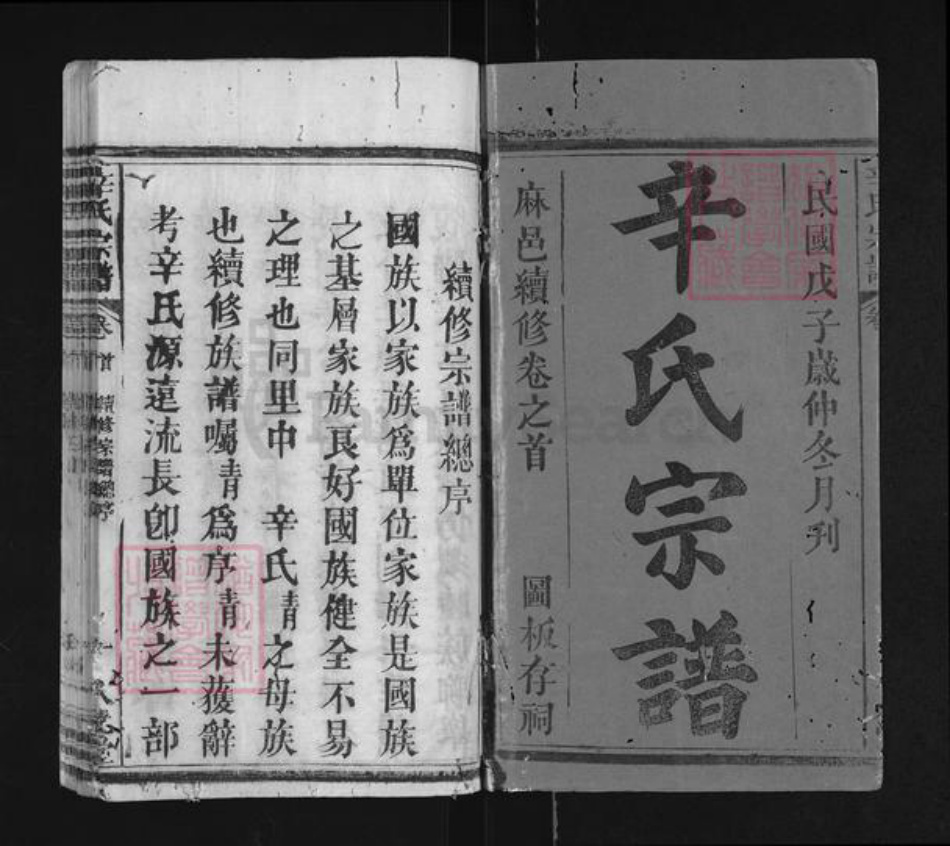 民國戊子歲仲冬月刊
辛氏宗譜
麻邑續修卷之首 圖板存祠
續修宗譜總序
國族以家族為單位家族是國族
之基層家族良好國族健全不易
之理也同里中 辛氏靑之母族
也續修族譜囑靑為序靑未獲辭
考辛氏源遠流長卽國族之一部
辛氏宗譜 卷首 續修宗譜總序 一